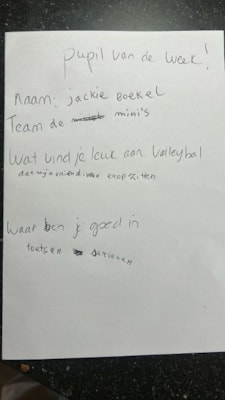 pupil van de week!
Naam: jackie Boekel
Team de mini's
Wat vind je leuk aan volleybal
dat mijn vriendinnen erop zitten
Waar ben je goed in
toetsen serveren